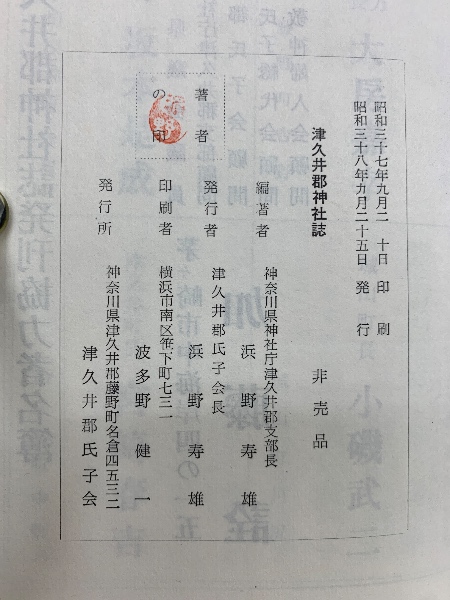 昭和三十七年九月二十日 印刷
昭和三十八年九月二十五日 発行
津久井郡神社誌 非売品
編著者 神奈川県神社庁津久井郡支部長
浜野寿雄
発行者 津久井郡氏子会長
浜野寿雄
印刷者 横浜市南区笹下町七三一
波多野健一
発行所 神奈川県津久井郡藤野町名倉四五三二
津久井郡氏子会
著者
の印